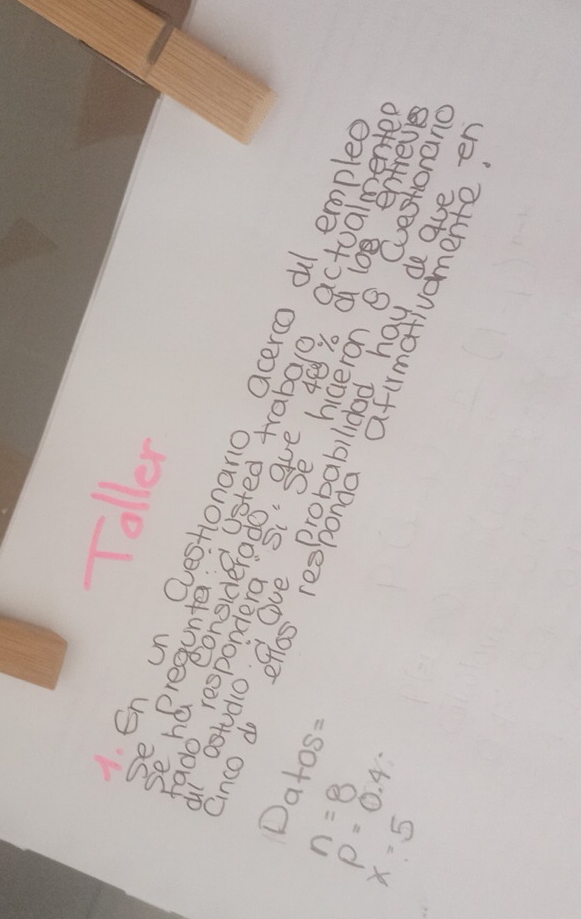 Taller
1. En un cuestionario acerca del empleo
se ha pregunta: Usted trabajo actualmente
considerado, que 40% de los entrevis
tado respondera "Sí". Se hicieron 8 cuestionario
del estudio. ¿ Que probabilidad hay de que
cinco de ellos responda afirmativamente. en
Datos=
n = 8
p = 0.4
x = 5